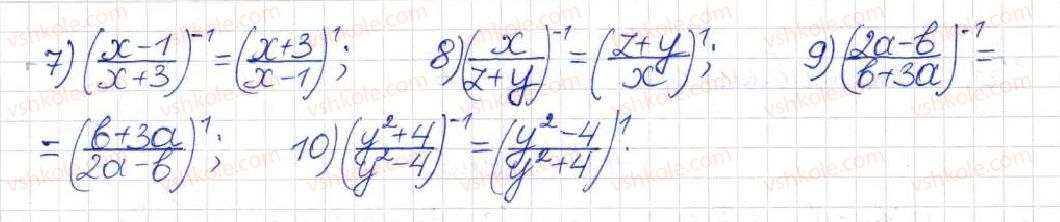 7) (x-1/x+3)^-1 = (x+3/x-1)^1; 8) (x/z+y)^-1 = (z+y/x)^1; 9) (2a-b/b+3a)^-1 =
= (b+3a/2a-b)^1; 10) (y²+4/y²-4)^-1 = (y²-4/y²+4)^1.